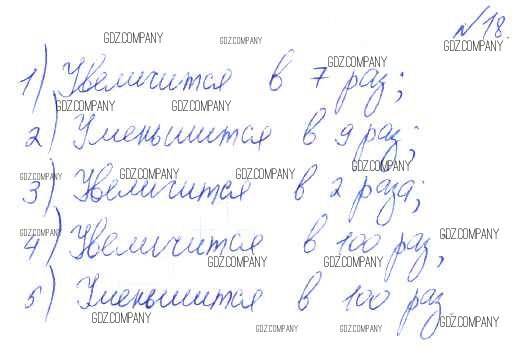 № 18.
GDZ.COMPANY GDZ.COMPANY GDZ.COMPANY
GDZ.COMPANY
1) Увеличится в 7 раз;
GDZ.COMPANY GDZ.COMPANY GDZ.COMPANY
2) Уменьшится в 9 раз;
GDZ.COMPANY GDZ.COMPANY GDZ.COMPANY GDZ.COMPANY
3) Увеличится в 2 раза;
GDZ.COMPANY GDZ.COMPANY
4) Увеличится в 100 раз;
GDZ.COMPANY GDZ.COMPANY
5) Уменьшится в 100 раз
GDZ.COMPANY GDZ.COMPANY GDZ.COMPANY GDZ.COMPANY